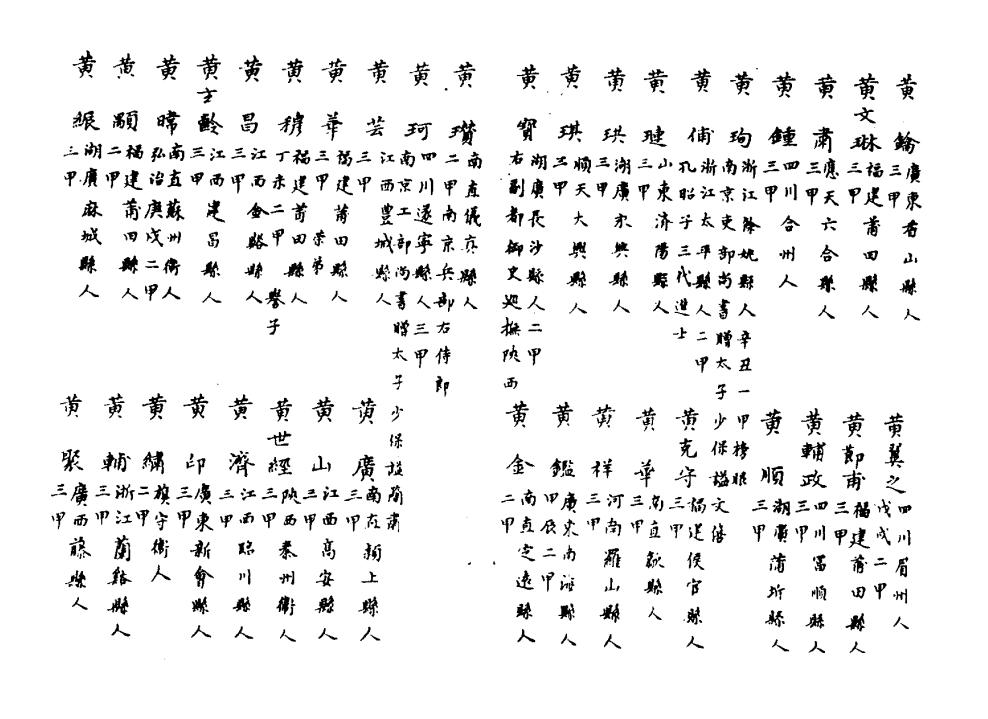 黃鑰
廣東香山縣人
三甲
黃文琳
福建莆田縣人
三甲
黃肅
應天六合縣人
三甲
黃鍾
四川合州人
三甲
黃珣
浙江餘姚縣人辛丑一甲榜眼
南京吏部尚書贈太子少保謚文僖
黃俌
浙江太平縣人二甲
孔昭子三代進士
黃璉
山東濟陽縣人
三甲
黃珙
湖廣永興縣人
三甲
黃琪
順天大興縣人
三甲
黃寶
湖廣長沙縣人二甲
右副都御史巡撫陝西
黃翼之
四川眉州人
戊戌二甲
黃節甫
福建莆田縣人
三甲
黃輔政
四川富順縣人
三甲
黃順
湖廣蒲圻縣人
三甲
黃克守
福建侯官縣人
三甲
黃華
南直歙縣人
三甲
黃祥
河南羅山縣人
三甲
黃鑑
廣東南海縣人
甲辰二甲
黃金
南直定遠縣人
二甲
黃瓚
南直儀真縣人
二甲南京兵部右侍郎
黃珂
四川遂寧縣人三甲
南京工部尚書贈太子少保謚簡肅
黃芸
江西豐城縣人
黃華
福建莆田縣人
三甲 榮弟
黃穆
福建莆田縣人
丁未二甲 譽子
黃昌
江西金谿縣人
三甲
黃士齡
江西建昌縣人
三甲
黃暐
南直蘇州衛人
弘治庚戌二甲
黃顒
福建莆田縣人
二甲
黃
湖廣麻城縣人
三甲
黃廣
南直潁上縣人
三甲
黃山
江西高安縣人
三甲
黃世經
陝西秦州衛人
三甲
黃濟
江西臨川縣人
三甲
黃印
廣東新會縣人
三甲
黃繡
旗守衛人
二甲
黃輔
浙江蘭谿縣人
三甲
黃聚
廣西藤縣人
三甲